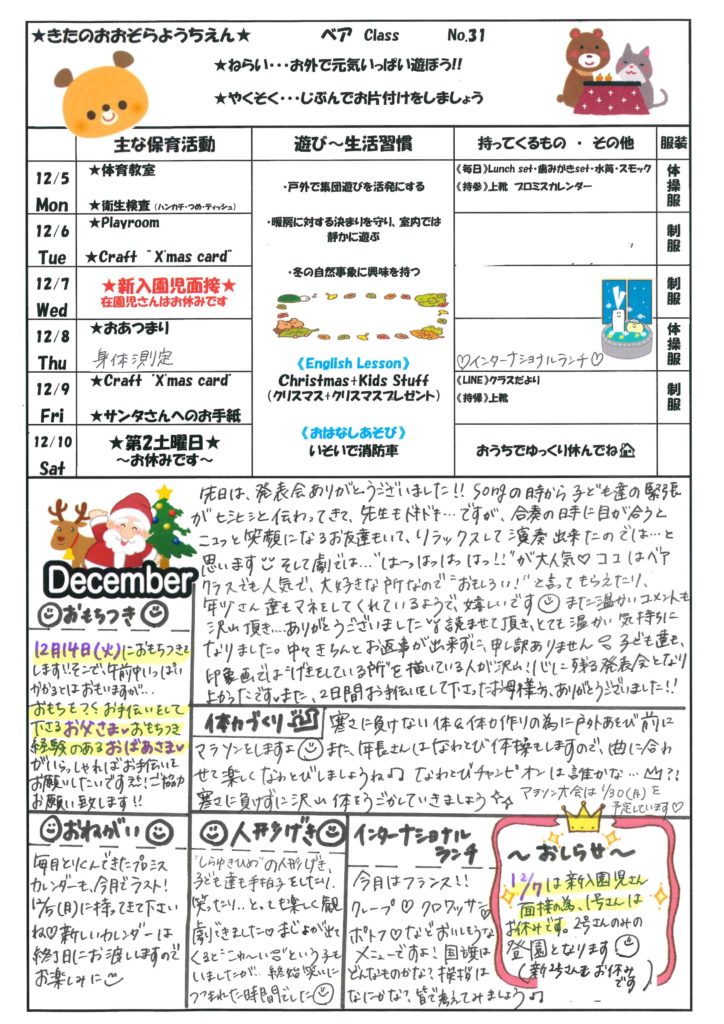 ★きたのおおぞらようちえん★ ベア Class No.31
★ねらい・・・お外で元気いっぱい遊ぼう!!
★やくそく・・・じぶんでお片付けをしましょう
主な保育活動 遊び～生活習慣 持ってくるもの ・ その他 服装
12/5 Mon
★体育教室
★衛生検査 (ハンカチ・つめ・ティッシュ)
・戸外で集団遊びを活発にする
《毎日》Lunch set・歯みがきset・水筒・スモック
《持参》上靴 プロミスカレンダー
体操服
12/6 Tue
★Playroom
★Craft "X'mas card"
・暖房に対する決まりを守り、室内では
静かに遊ぶ
制服
12/7 Wed
★新入園児面接★
在園児さんはお休みです
・冬の自然事象に興味を持つ
制服
12/8 Thu
★おあつまり
身体測定
♡インターナショナルランチ♡
体操服
《English Lesson》
Christmas+Kids Stuff
(クリスマス+クリスマスプレゼント)
12/9 Fri
★Craft "X'mas card"
★サンタさんへのお手紙
《LINE》クラスだより
《持帰》上靴
制服
《おはなしあそび》
いそいで消防車
12/10 Sat
★第2土曜日★
～お休みです～
おうちでゆっくり休んでね
December
先日は、発表会ありがとうございました!! Songの時から子ども達の緊張
がヒシヒシと伝わってきて、先生もドキドキ…ですが、合奏の時に目が合うと
ニコッと笑顔になるお友達もいて、リラックスして演奏出来たのでは…と
思います そして劇では…"はーっはっはっはっ!!"が大人気♡ ココはベア
クラスでも人気で、大好きな所なので"おもしろい!"と言ってもらえたり、
年少さん達もマネをしてくれているようで、嬉しいです また温かいコメントも
沢山頂き…ありがとうございました 読ませて頂き、とても温かい気持ちに
なりました。中々きちんとお返事が出来ずに、申し訳ありません 子ども達も、
印象画では"げきをしている所"を描いている人が沢山!心に残る発表会となり
よかったです また、2日間お手伝いをして下さったお母様方、ありがとうございました!!
おもちつき
12月14日(火)におもちつきを
します!そこで、午前中いっぱい
かかるとはおもいますが…
おもちをつくお手伝いをして
下さるお父さま♥おもちつき
経験のあるおばあさま♥
がいらっしゃればお手伝いを
お願いしたいです!ご協力
お願い致します!!
体力づくり 寒さに負けない体&体力作りの為に戸外あそび前に
マラソンをしますよ また、年長さんはなわとび体操もしますので、曲に合わ
せて楽しくなわとびしましょうね♪ なわとびチャンピオンは誰かな…??
寒さに負けずに沢山体をうごかしていきましょう☆
マラソン大会は 1/30(月)を
予定しています♡
おねがい
毎日とりくんできたプロミス
カレンダーも、今月でラスト!
12/5(月)に持ってきて下さい
ね♡ 新しいカレンダーは
終了日にお渡ししますので
お楽しみに
人形劇
"しらゆきひめ"の人形げき、
子ども達も手拍子をしたり、
笑ったり…とっても楽しく観
劇できました♡ まじょが出て
くると"こわーい"という子も
いましたが…終始笑いに
つつまれた時間でした
インターナショナル
ランチ
今月はフランス!!
クレープ♡ クロワッサン♡
ポトフ♡などおいしそうな
メニューですよ! 国旗は
どんなものかな?挨拶は
なにかな?皆で考えてみましょう♪
～おしらせ～
12/7は新入園児さん
面接の為、1号さんは
お休みです。2号さんのみの
登園となります
(新2号さんもお休み
です)